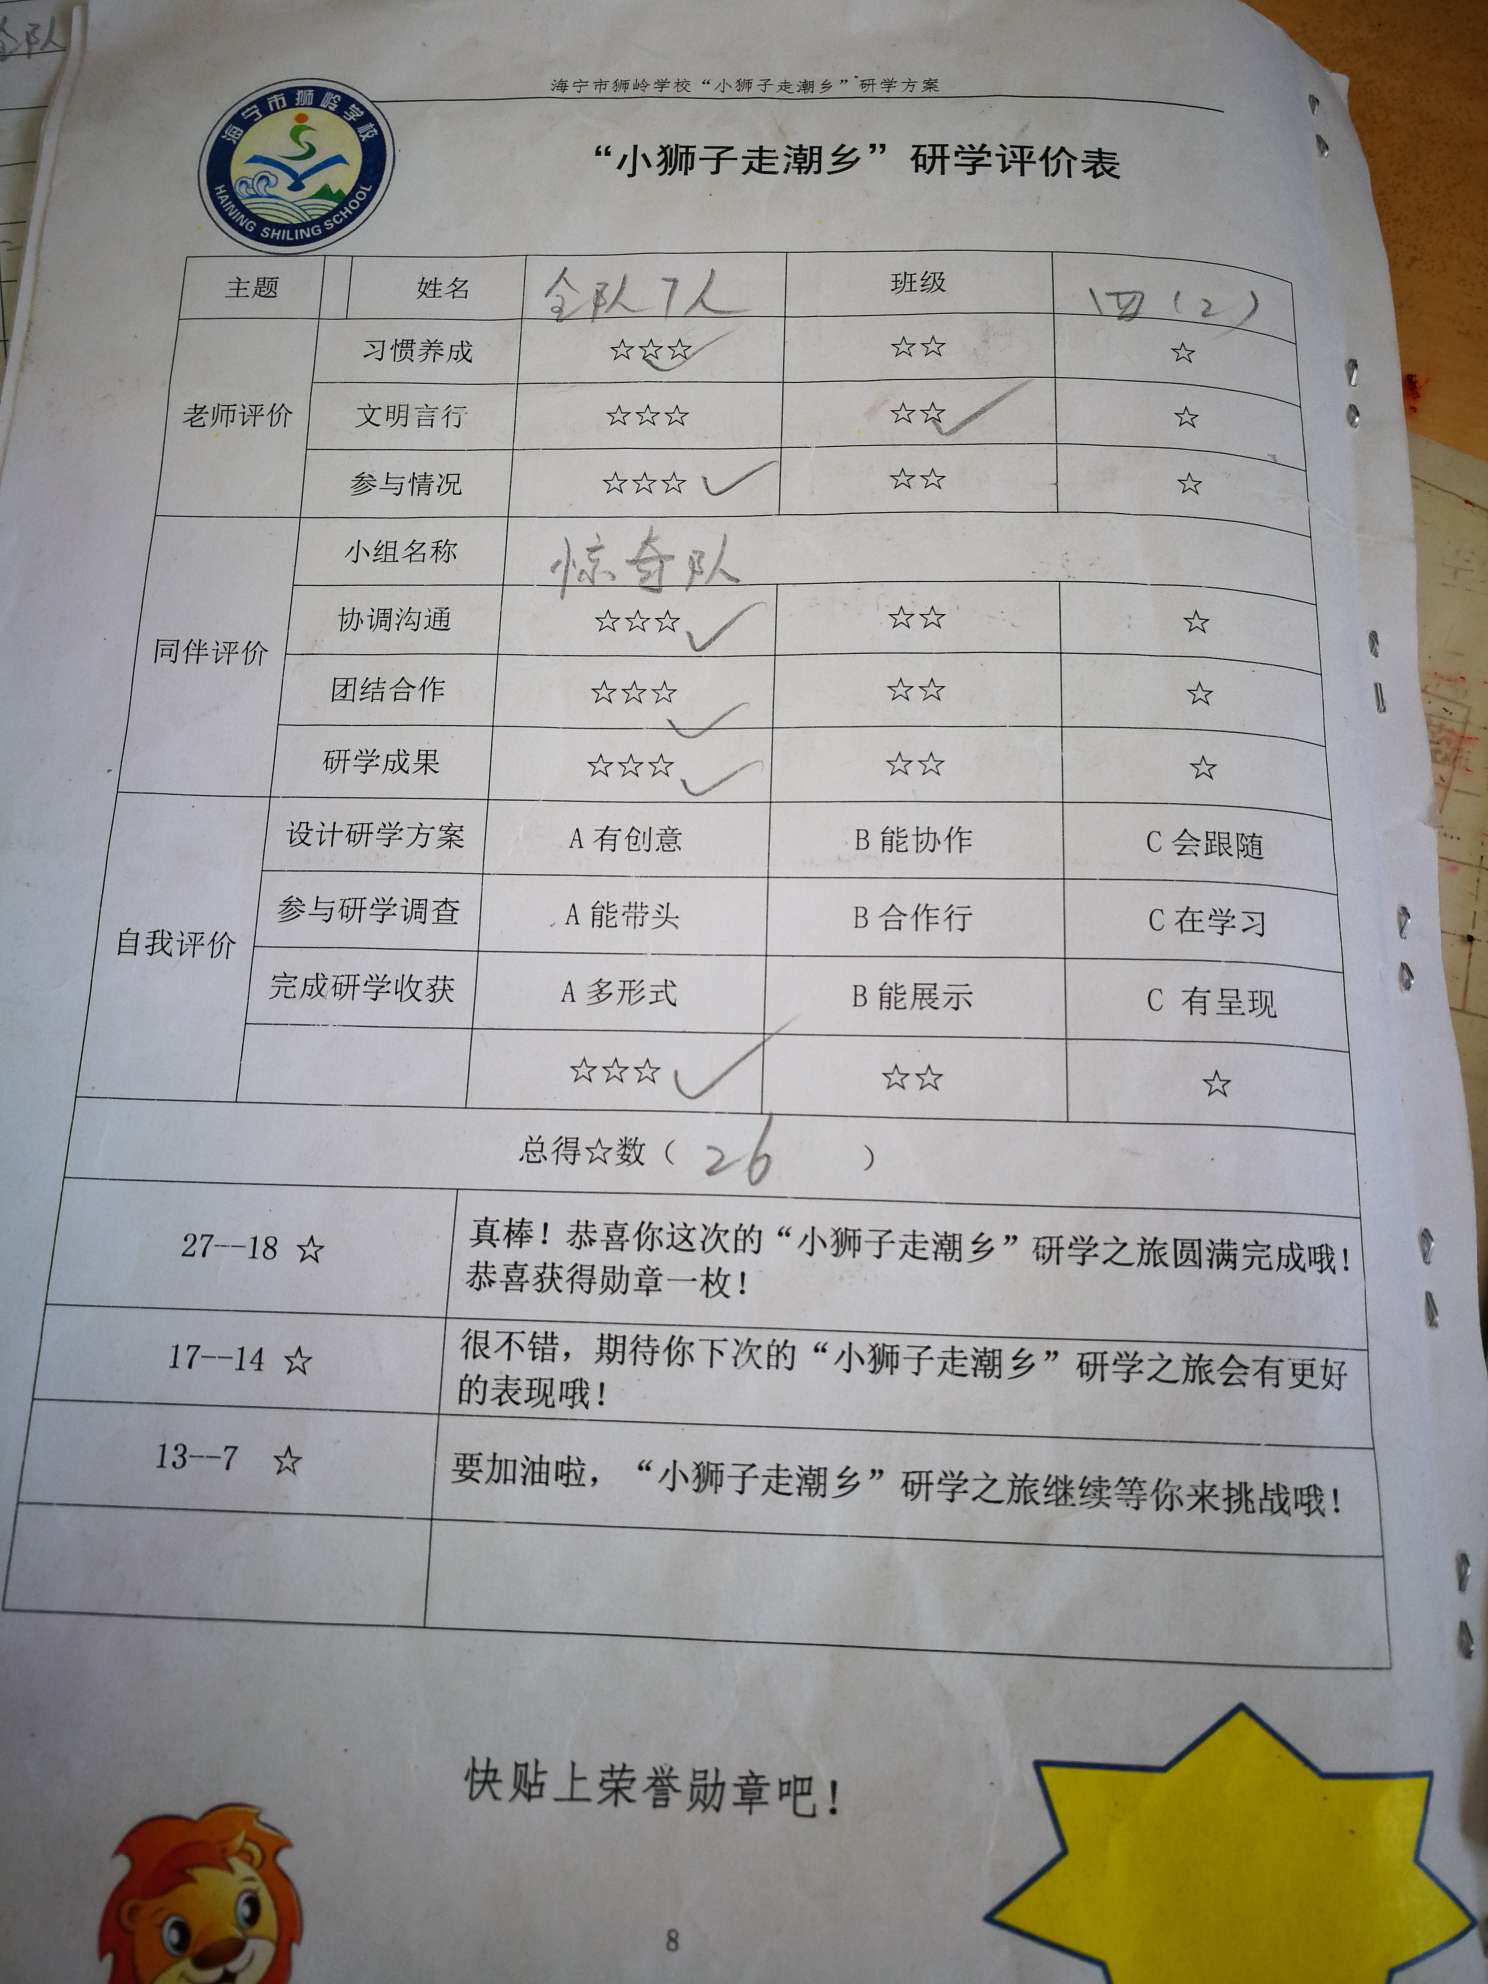 全队
海宁市狮岭学校“小狮子走潮乡”研学方案
海宁市狮岭学校
HAINING SHILING SCHOOL
“小狮子走潮乡”研学评价表
主题 姓名 全队7人 班级 四(2)
老师评价
习惯养成 ☆☆☆ ☆☆ ☆
文明言行 ☆☆☆ ☆☆ ☆
参与情况 ☆☆☆ ☆☆ ☆
同伴评价
小组名称 惊奇队
协调沟通 ☆☆☆ ☆☆ ☆
团结合作 ☆☆☆ ☆☆ ☆
研学成果 ☆☆☆ ☆☆ ☆
自我评价
设计研学方案 A 有创意 B 能协作 C 会跟随
参与研学调查 A 能带头 B 合作行 C 在学习
完成研学收获 A 多形式 B 能展示 C 有呈现
☆☆☆ ☆☆ ☆
总得☆数（ 26 ）
27--18 ☆ 真棒！恭喜你这次的“小狮子走潮乡”研学之旅圆满完成哦！
恭喜获得勋章一枚！
17--14 ☆ 很不错，期待你下次的“小狮子走潮乡”研学之旅会有更好
的表现哦！
13--7 ☆ 要加油啦，“小狮子走潮乡”研学之旅继续等你来挑战哦！
快贴上荣誉勋章吧！
8